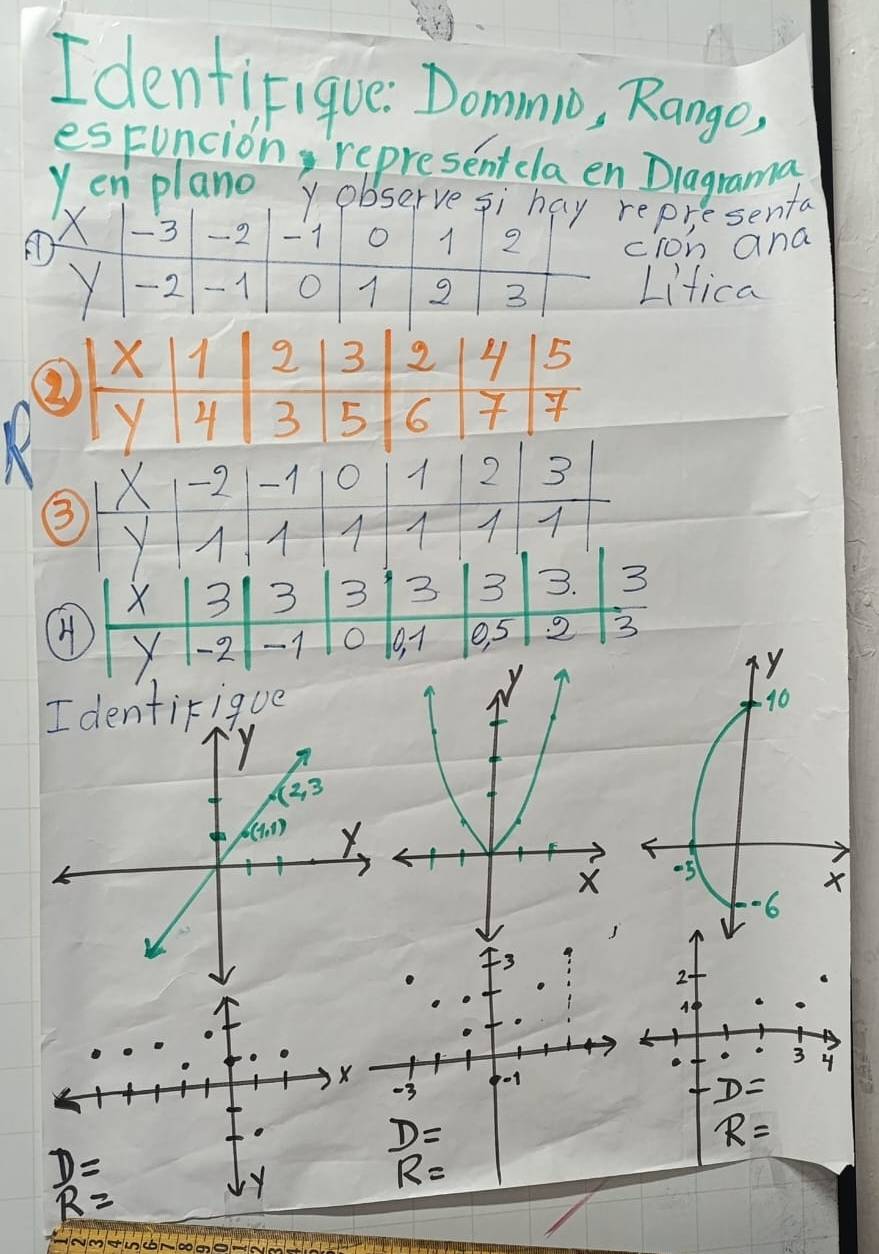 Identifique: Dominio, Rango,
es Función, represéntela en Diagrama
y en plano y observe si hay representa
ción ana
Lítica
① X -3 -2 -1 0 1 2
Y -2 -1 0 1 2 3
② X 1 2 3 2 4 5
Y 4 3 5 6 7 7
R
③ X -2 -1 0 1 2 3
Y 1 1 1 1 1 1
④ X 3 3 3 3 3 3. 3
Y -2 -1 0 0,1 0,5 2 3
Identifique
Y
(2,3
(1,1)
Y
Y
X
Y
10
-5
X
-6
X
Y
D=
R=
3
-3
-1
D=
R=
2
1
3 4
D=
R=
1 2 3 4 5 6 7 8 9 0 1 2 3